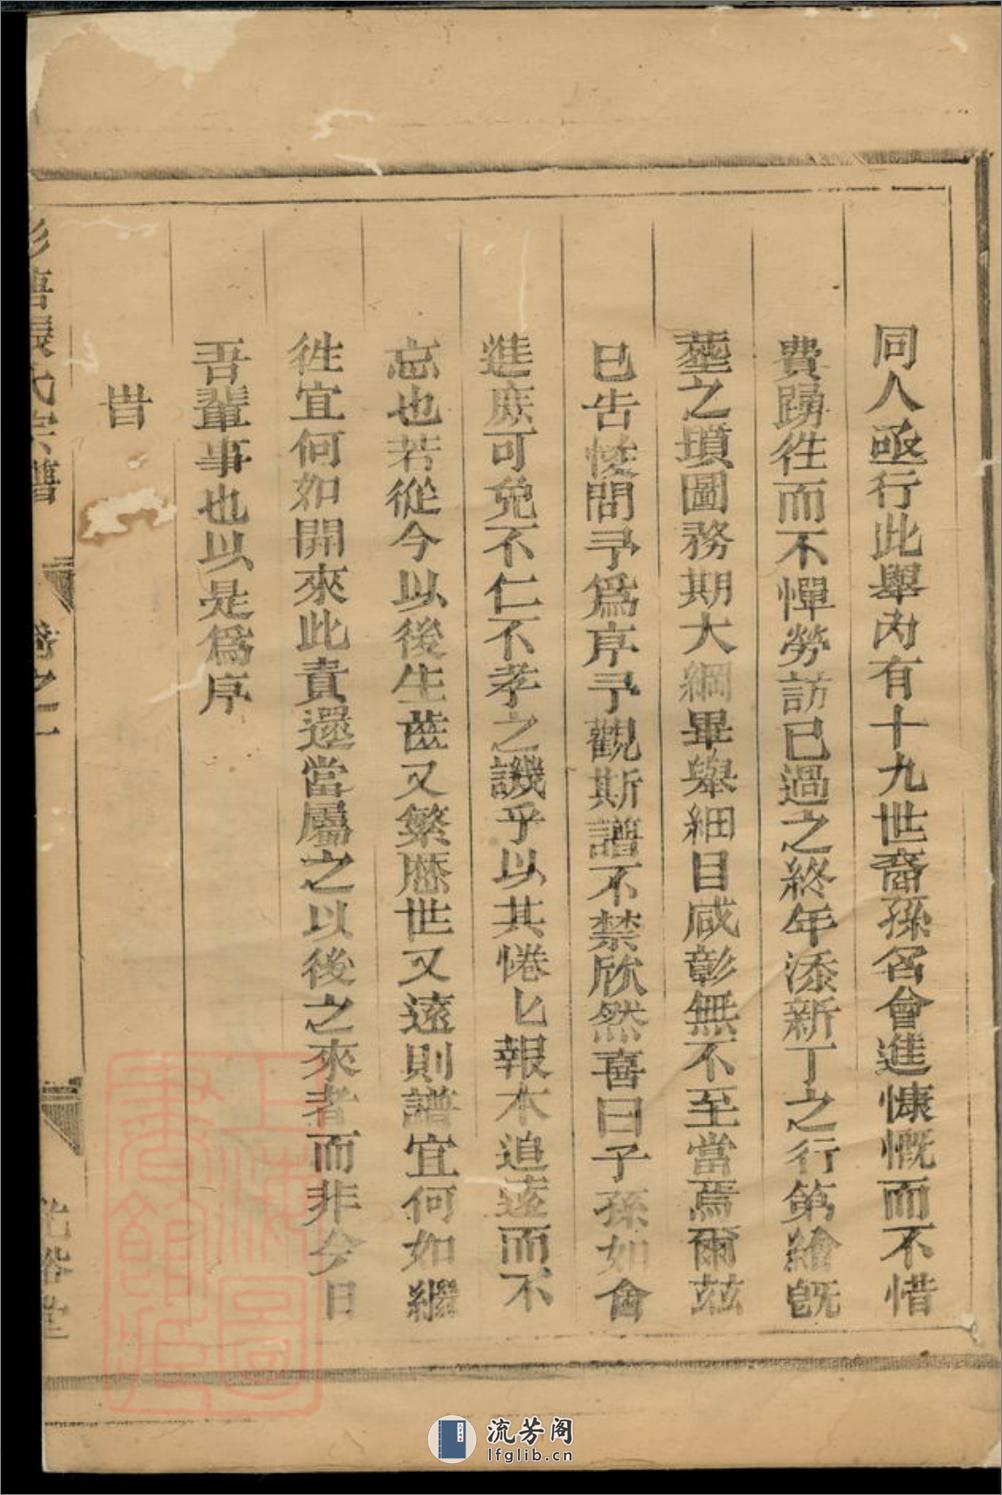 同人亟行此舉內有十九世裔孫名會進慷慨而不惜
費踴徃而不憚勞訪已過之終年添新丁之行第繪旣
塟之墳圖務期大綱畢舉細目咸彰無不至當焉爾茲
已告悛問予爲序予觀斯譜不禁欣然喜曰子孫如會
進庶可免不仁不孝之譏乎以其惓匕報本追遠而不
忘也若從今以後生齒又繁歴世又遠則譜宜何如繼
徃宜何如開來此責還當屬之以後之來者而非今日
吾輩事也以是爲序
旹
氏宗譜
卷之一
光裕堂
上海圖書館藏
流芳阁
lfglib.cn